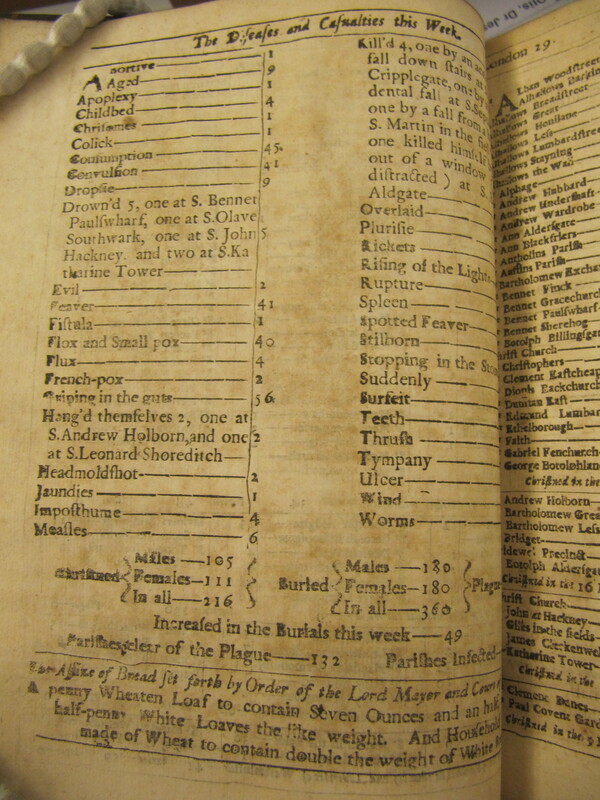 The Diseases and Casualties this Week.
Abortive 1
Aged 9
Apoplexy 1
Childbed 4
Chrisomes 1
Colick 1
Consumption 45
Convulsion 41
Dropsie 9
Drown'd 5, one at S. Bennet
Paulswharf, one at S. Olave
Southwark, one at S. John 5
Hackney. and two at S. Ka
tharine Tower
Evil 2
Feaver 41
Fistula 1
Flox and Small pox 40
Flux 4
French-pox 2
Griping in the guts 56
Hang'd themselves 2, one at
S. Andrew Holborn, and one 2
at S. Leonard Shoreditch
Headmoldshot 2
Jaundies 1
Imposthume 4
Measles 6
Kill'd 4, one by an
fall down stairs
Cripplegate, one by
dental fall at S.
one by a fall from
S. Martin in the
one killed himself
out of a window
distracted ) at S.
Aldgate
Overlaid
Plurisie
Rickets
Rising of the Lights
Rupture
Spleen
Spotted Feaver
Stilborn
Stopping in the
Suddenly
Surfeit
Teeth
Thrush
Tympany
Ulcer
Wind
Worms
Christned Males 105
Females 111
In all 216
Buried Males 180
Females 180
In all 360
Plague
Increased in the Burials this week 49
Parishes clear of the Plague 132 Parishes Infected
The Assize of Bread set forth by Order of the Lord Mayor and Court of
A penny Wheaten Loaf to contain Seven Ounces and an half,
half-penny White Loaves the like weight. And Household
made of Wheat to contain double the weight of White
London 29
Alban Woodstreet
Alhallows Barkin
Alhallows Breadstreet
Alhallows Great
Alhallows Honilane
Alhallows Less
Alhallows Lumbardstreet
Alhallows Stayning
Alhallows the Wall
Alphage
Andrew Hubbard
Andrew Undershaft
Andrew Wardrobe
Ann Aldersgate
Ann Blackfriers
Antholins Parish
Austins Parish
Bartholomew Exchan
Bennet Finck
Bennet Gracechurch
Bennet Paulswharf
Bennet Sherehog
Botolph Billingsgat
Christ Church
Christophers
Clement Eastcheap
Dionis Backchurch
Dunstan East
Edmund Lumbar
Ethelborough
Faith
Gabriel Fenchurch
George Botolphlan
Christned in the
Andrew Holborn
Bartholomew Great
Bartholomew Less
Bridget
Bridewel Precinct
Botolph Aldersgat
Christned in the 16
Christ Church
John at Hackney
Giles in the fields
James Clerkenwel
Katharine Tower
Christned in the
Clement Danes
Paul Covent Gard
Christned in the 5